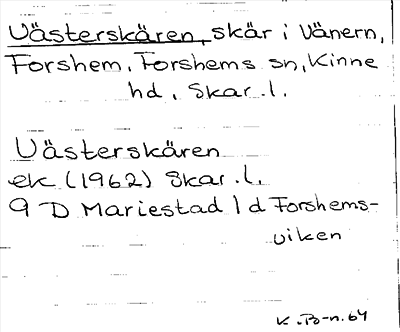 Västerskären, skär i Vänern,
Forshem, Forshems sn, Kinne
hd, Skar.l.
Västerskären
ek (1962) Skar.l.
9 D Mariestad 1 d Forshems-
viken
K.B-n.64